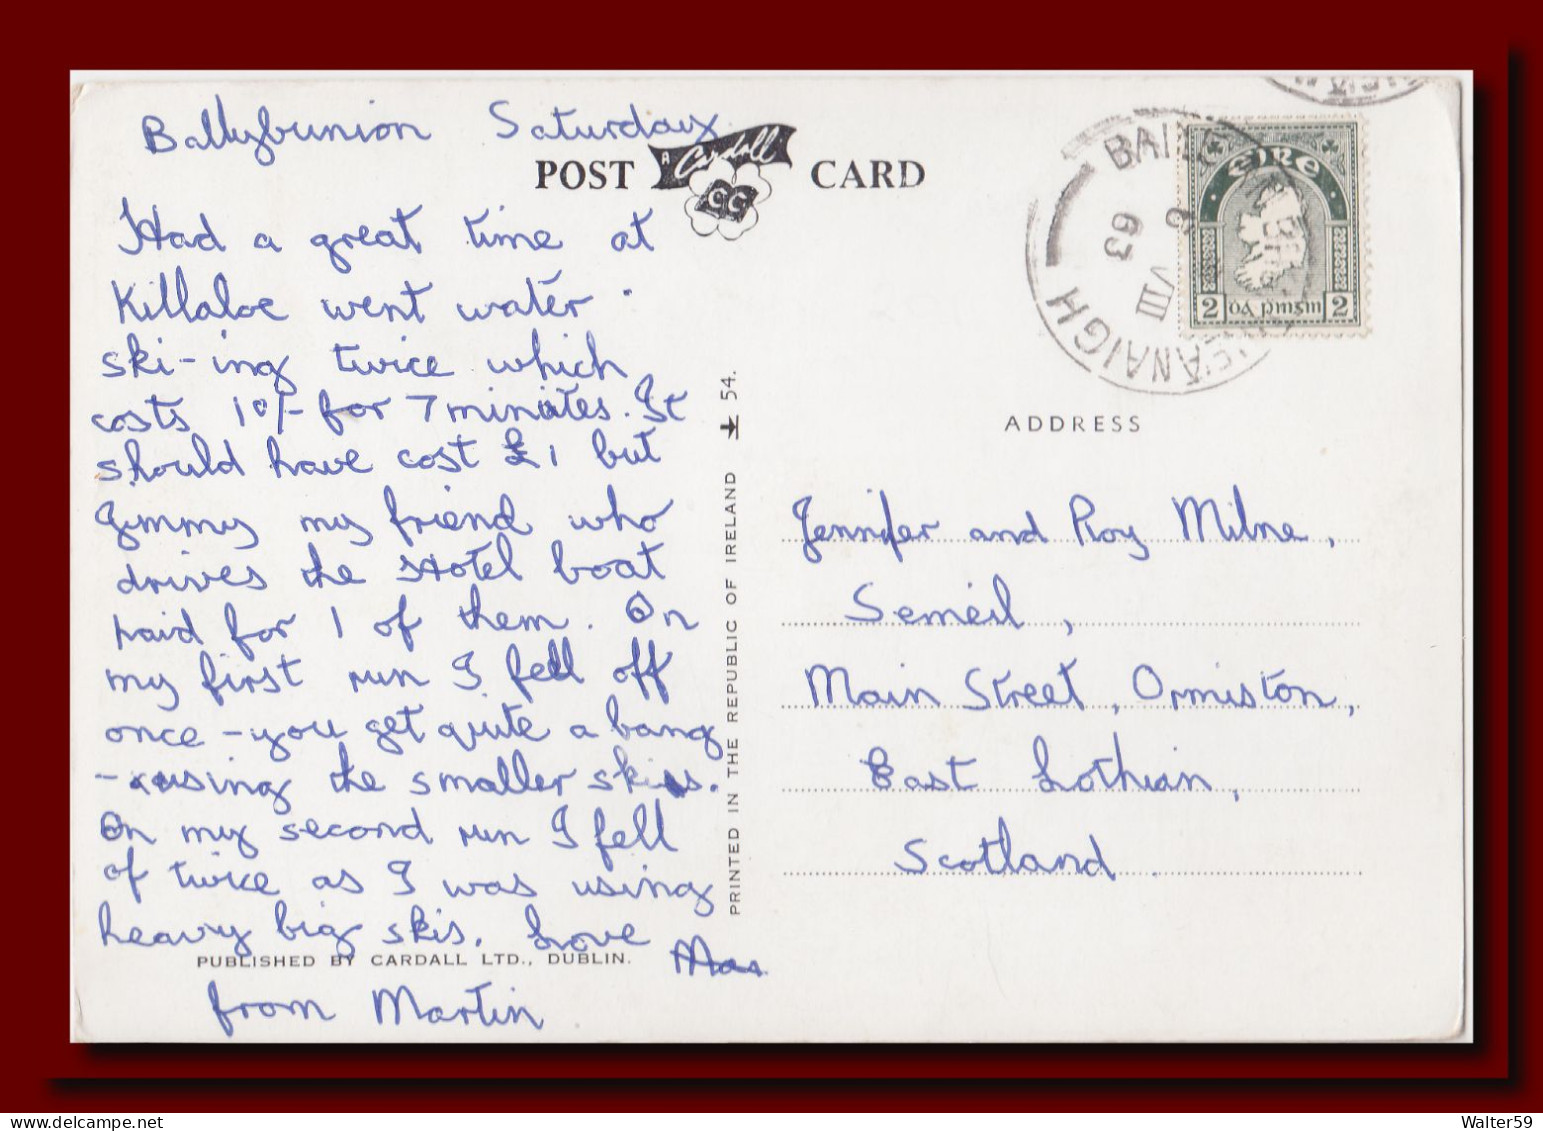 Ballybunion Saturday
POST A Cardall CC CARD
Had a great time at
Killaloe went water
ski-ing twice which
costs 10/- for 7 minutes. It
should have cost £1 but
Jimmy my friend who
drives the Hotel boat
paid for 1 of them. On
my first run I fell off
once - you get quite a bang
- using the smaller skis.
On my second run I fell
of twice as I was using
heavy big skis. Love
from Martin
PUBLISHED BY CARDALL LTD., DUBLIN.
PRINTED IN THE REPUBLIC OF IRELAND 54.
63
VIII
éire
2 dá pinginn 2
ADDRESS
Jennifer and Roy Milne,
Semeil,
Main Street, Ormiston,
East Lothian,
Scotland.
www.delcampe.net
Walter59